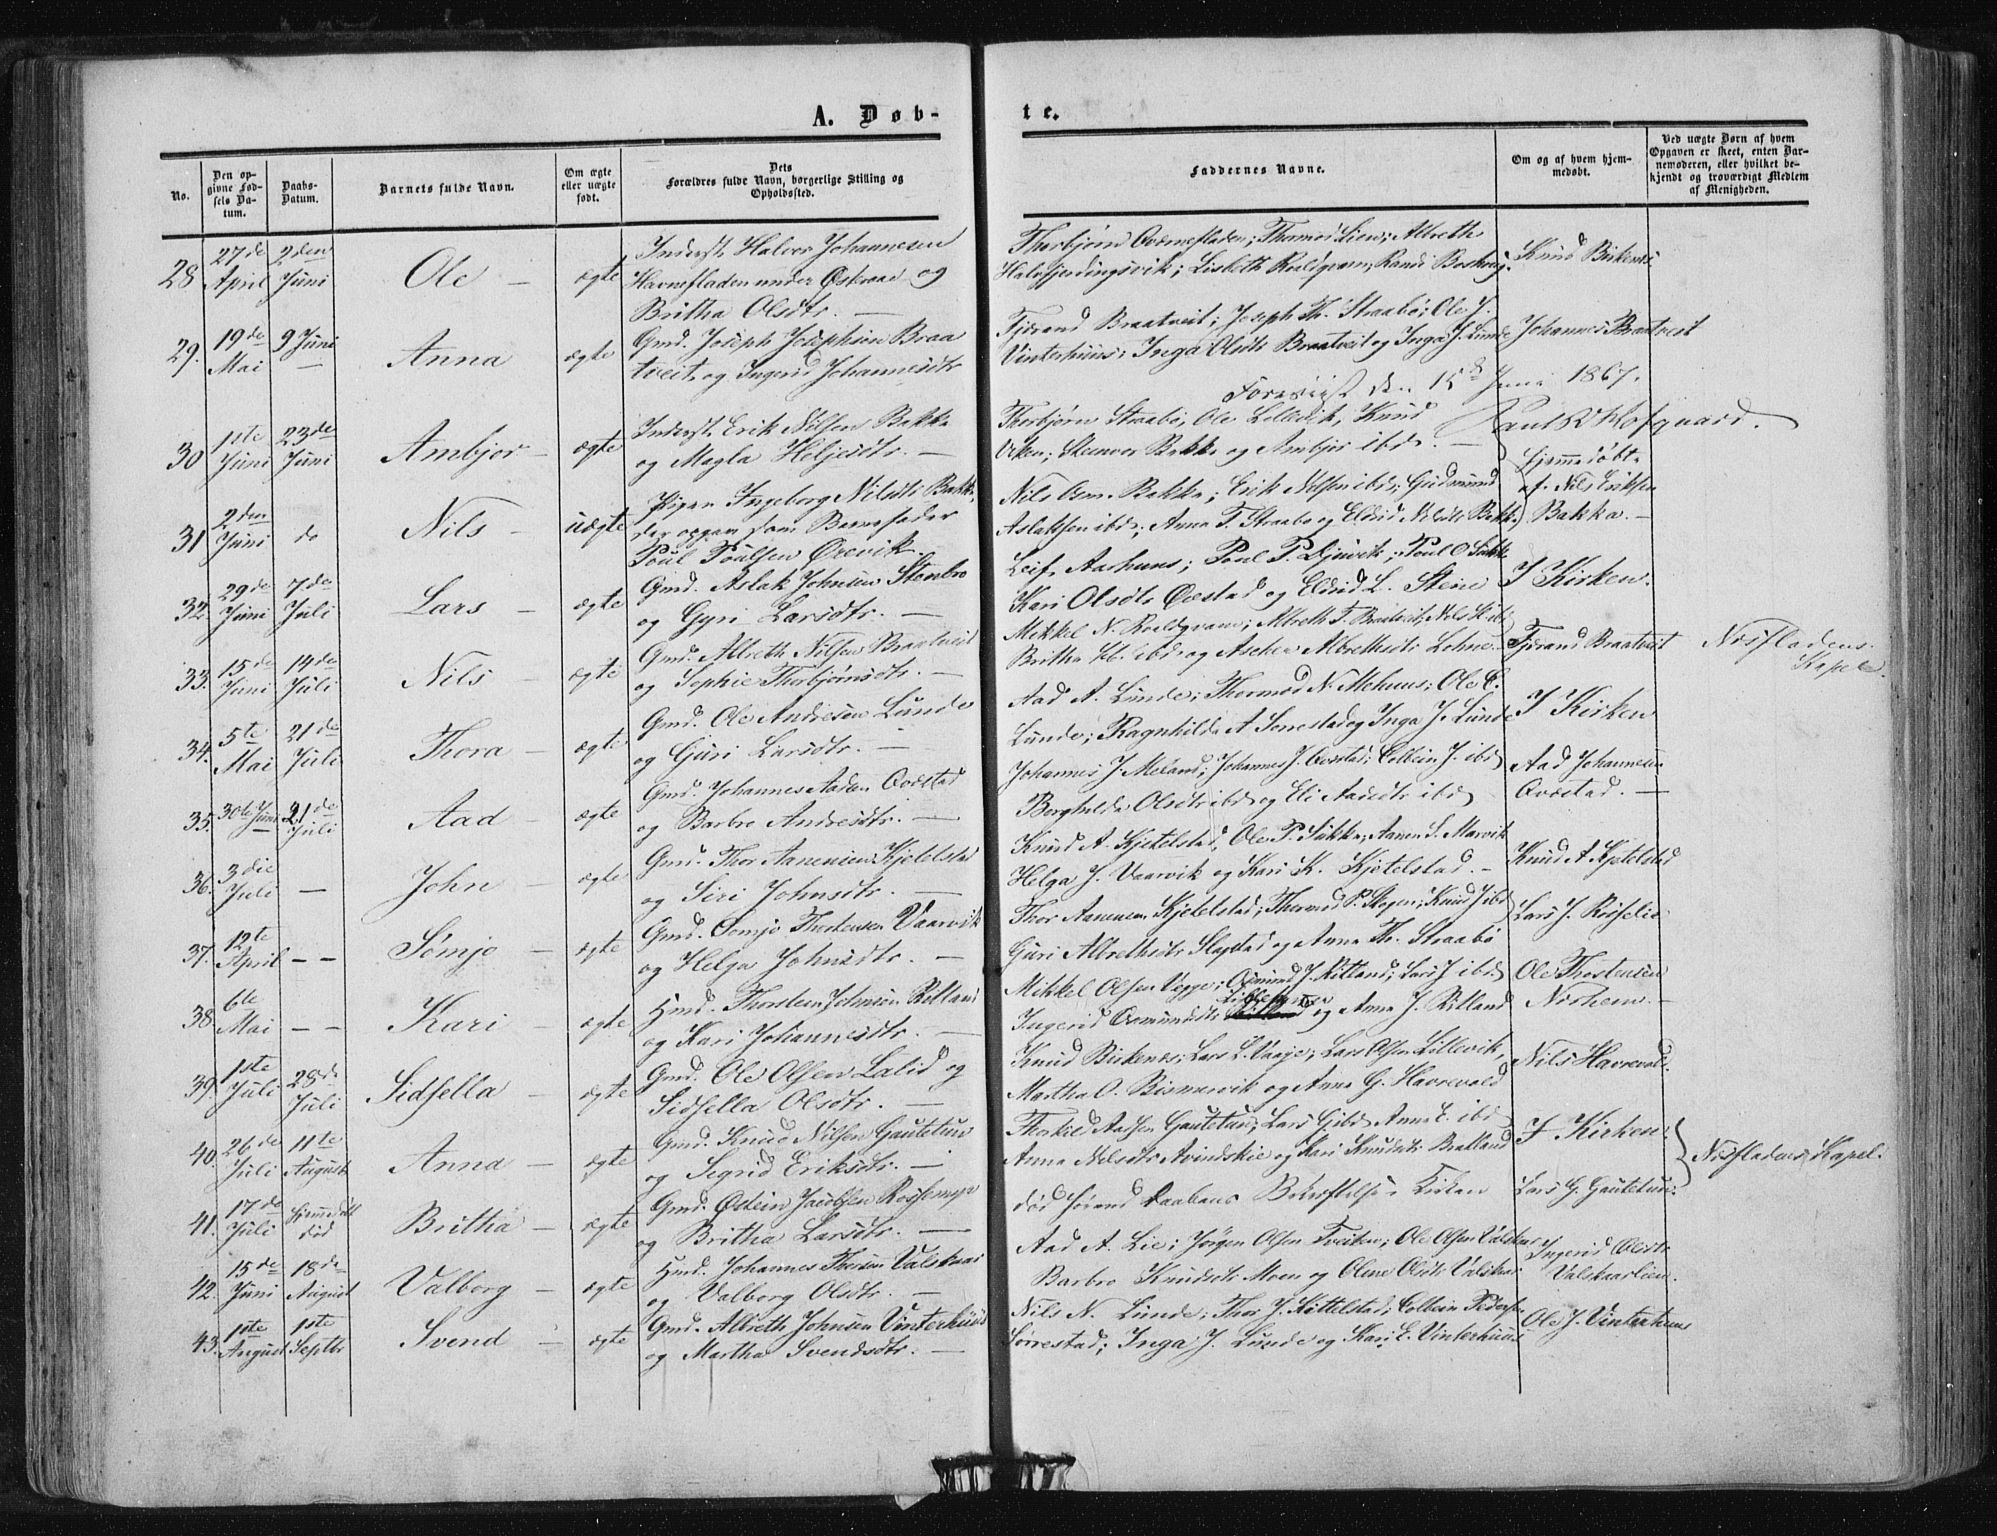 A. Døb-
te.
No.
Den opgivne Fødsels Datum.
Daabs-Datum.
Barnets fulde Navn.
Om ægte eller uægte født.
Dets Forældres fulde Navn, borgerlige Stilling og Opholdssted.
Faddernes Navne.
Om og af hvem hjemmedøbt.
Ved uægte Børn af hvem Opgaven er skeet, enten Barnemoderen, eller hvilket bekjendt og troværdigt Medlem af Menigheden.
28 27de April 2den Juni Ole — ægte
Inderst Halvor Johannesen
Havnefladen under
og
Britha Olsdtr. —
Halvfjerdingsvik; Lisbeth Roaldqvam; Randi
Knud Birkenes
29. 19de Mai 9 Juni — Anna ægte
Gmd. Joseph Josephsen Braa
tveit og Ingerid Johannesdtr
Tjerand Braatveit; Joseph Th. Straabø; Ole J.
Vinterhuus; Inga Olsdtr Braatveit og Inga J. Lunde
Johannes Braatveit
Foreviist den 15de Juni 1867.
30 1ste Juni 23de Juni Ambjor — ægte
Inderst Erik Nilsen Bakka
og Magla Heljesdtr. —
Thorbjørn Straabø, Ole Lillevik, Knud
Viken; Steinvor Bakka og Ambjor ibd. —
31 2den Juni do Nils — uægte
Pigen Ingeborg Nilsdtr Bakka,
der opgav som Barnefader
Poul Poulsen Ørevik.
Nils Osm. Bakka; Erik Nilsen ibd; Gudmund
Aslaksen ibd; Anna T. Straabø og Eldrid Nilsdtr Bakka
Hjemmedøbt
af Nils Eriksen
Bakka. —
32 29de Juni 7de Juli Lars — ægte
Gmd. Aslak Johnsen Stenbro
og Gyri Larsdtr. —
Leif Aarhuus; Poul P. Djuvik; Poul O. Sukke
Kari Olsdtr Qvæstad og Eldrid L. Steine
I Kirken.
33. 15de Juni 14de Juli Nils — ægte
Gmd. Albreth Nilsen Braatveit
og Sophie Thorbjørnsdtr. —
Mikkel N. Roaldqvam; Albreth T. Braatveit,
Britha
ibd og
Albrethsdtr Lohne
Tjerand Braatveit
Næsfladens
Kapel.
34. 5te Mai 21de Juli Thora — ægte
Gmd. Ole Andresen Lunde
og Guri Larsdtr. —
Aad A. Lunde; Thormod N. Mehuus; Ole E.
Lunde; Ragnhilda A
og Inga J. Lunde
I Kirken
35. 30te Juni 21de Juli Aad — ægte
Gmd. Johannes Aadsen Qvæstad
og Barbro Andresdtr. —
Johannes J. Meland; Johannes J. Qvæstad; Colbein J. ibd
Borghilda Olsdtr ibd og Eli Aadsdtr ibd
Aad Johannesen
Qvæstad. —
36. 3die Juli — John — ægte
Gmd. Thor Aanensen Kjetelstad
og Siri Johnsdtr. —
Knud A. Kjetelstad, Ole P. Sukka, Aanen S. Marvik
Helga J. Vaarvik og Kari K. Kjetelstad. —
Knud A Kjetelstad
37. 12te April — — Sømje — ægte
Gmd.
Thorstensen Vaarvik
og Helga Johnsdtr. —
Thor Aanensen Kjetelstad; Thormod P. Skogen; Knud J ibd
Guri Albrethsdtr Slagstad og Anna Th. Straabø
Lars J. Røsselie
38. 6te Mai — — Kari — ægte
Hmd. Thorstein Johnsen Ritland
og Kari Johannesdtr. —
Mikkel Olsen Vegge; Osmund J. Ritland; Lars J ibd
Ingerid Osmundsdtr
og Anna J. Ritland
Ole Thorstensen
Norheim. —
39. 1ste Juli 28de Juli Sidsella — ægte
Gmd. Ole Olsen Lalid og
Sidsella Olsdtr. —
Knud Birkenes; Lars L. Vaaje; Lars Olsen Lillevik,
Martha O.
og Anna G. Havrevold
Nils Havrevold
40. 26de Juli 11te August Anna — ægte
Gmd. Knud Nilsen Gautetun
og Segrid Eriksdtr. —
Thorkild Aadsen Gautetun; Lars G ibd, Anna E. ibd
Anna Nilsdtr Avindskie og Kari Knudsdtr Bratland
I Kirken.
Næsfladens Kapel.
41. 17de Juli hjemmedøbt død Britha — ægte
Gmd. Østein Jacobsen
og Britha Larsdtr. —
død førend Daabens Bekræftelse i Kirken
Lars G. Gautetun.
42. 15de Juni 18de August Valborg — ægte
Hmd. Johannes Thorsen Valskaar
og Valborg Olsdtr. —
Aad A. Lie; Jørgen Olsen Tveiten; Ole Olsen Valskaar
Barbro Knudsdtr Moen og Oline Olsdtr Valskaar
Ingerid Olsdtr
Valskaarlien.
43. 1ste August 1ste Septbr Svend — ægte
Gmd. Albreth Johnsen Vinterhuus
og Martha Svendsdtr. —
Nils N. Lunde; Thor J. Kittelstad; Colbein Peders
Sørrestad; Inga J. Lunde og Kari E. Vinterhuus
Ole J. Vinterhuus